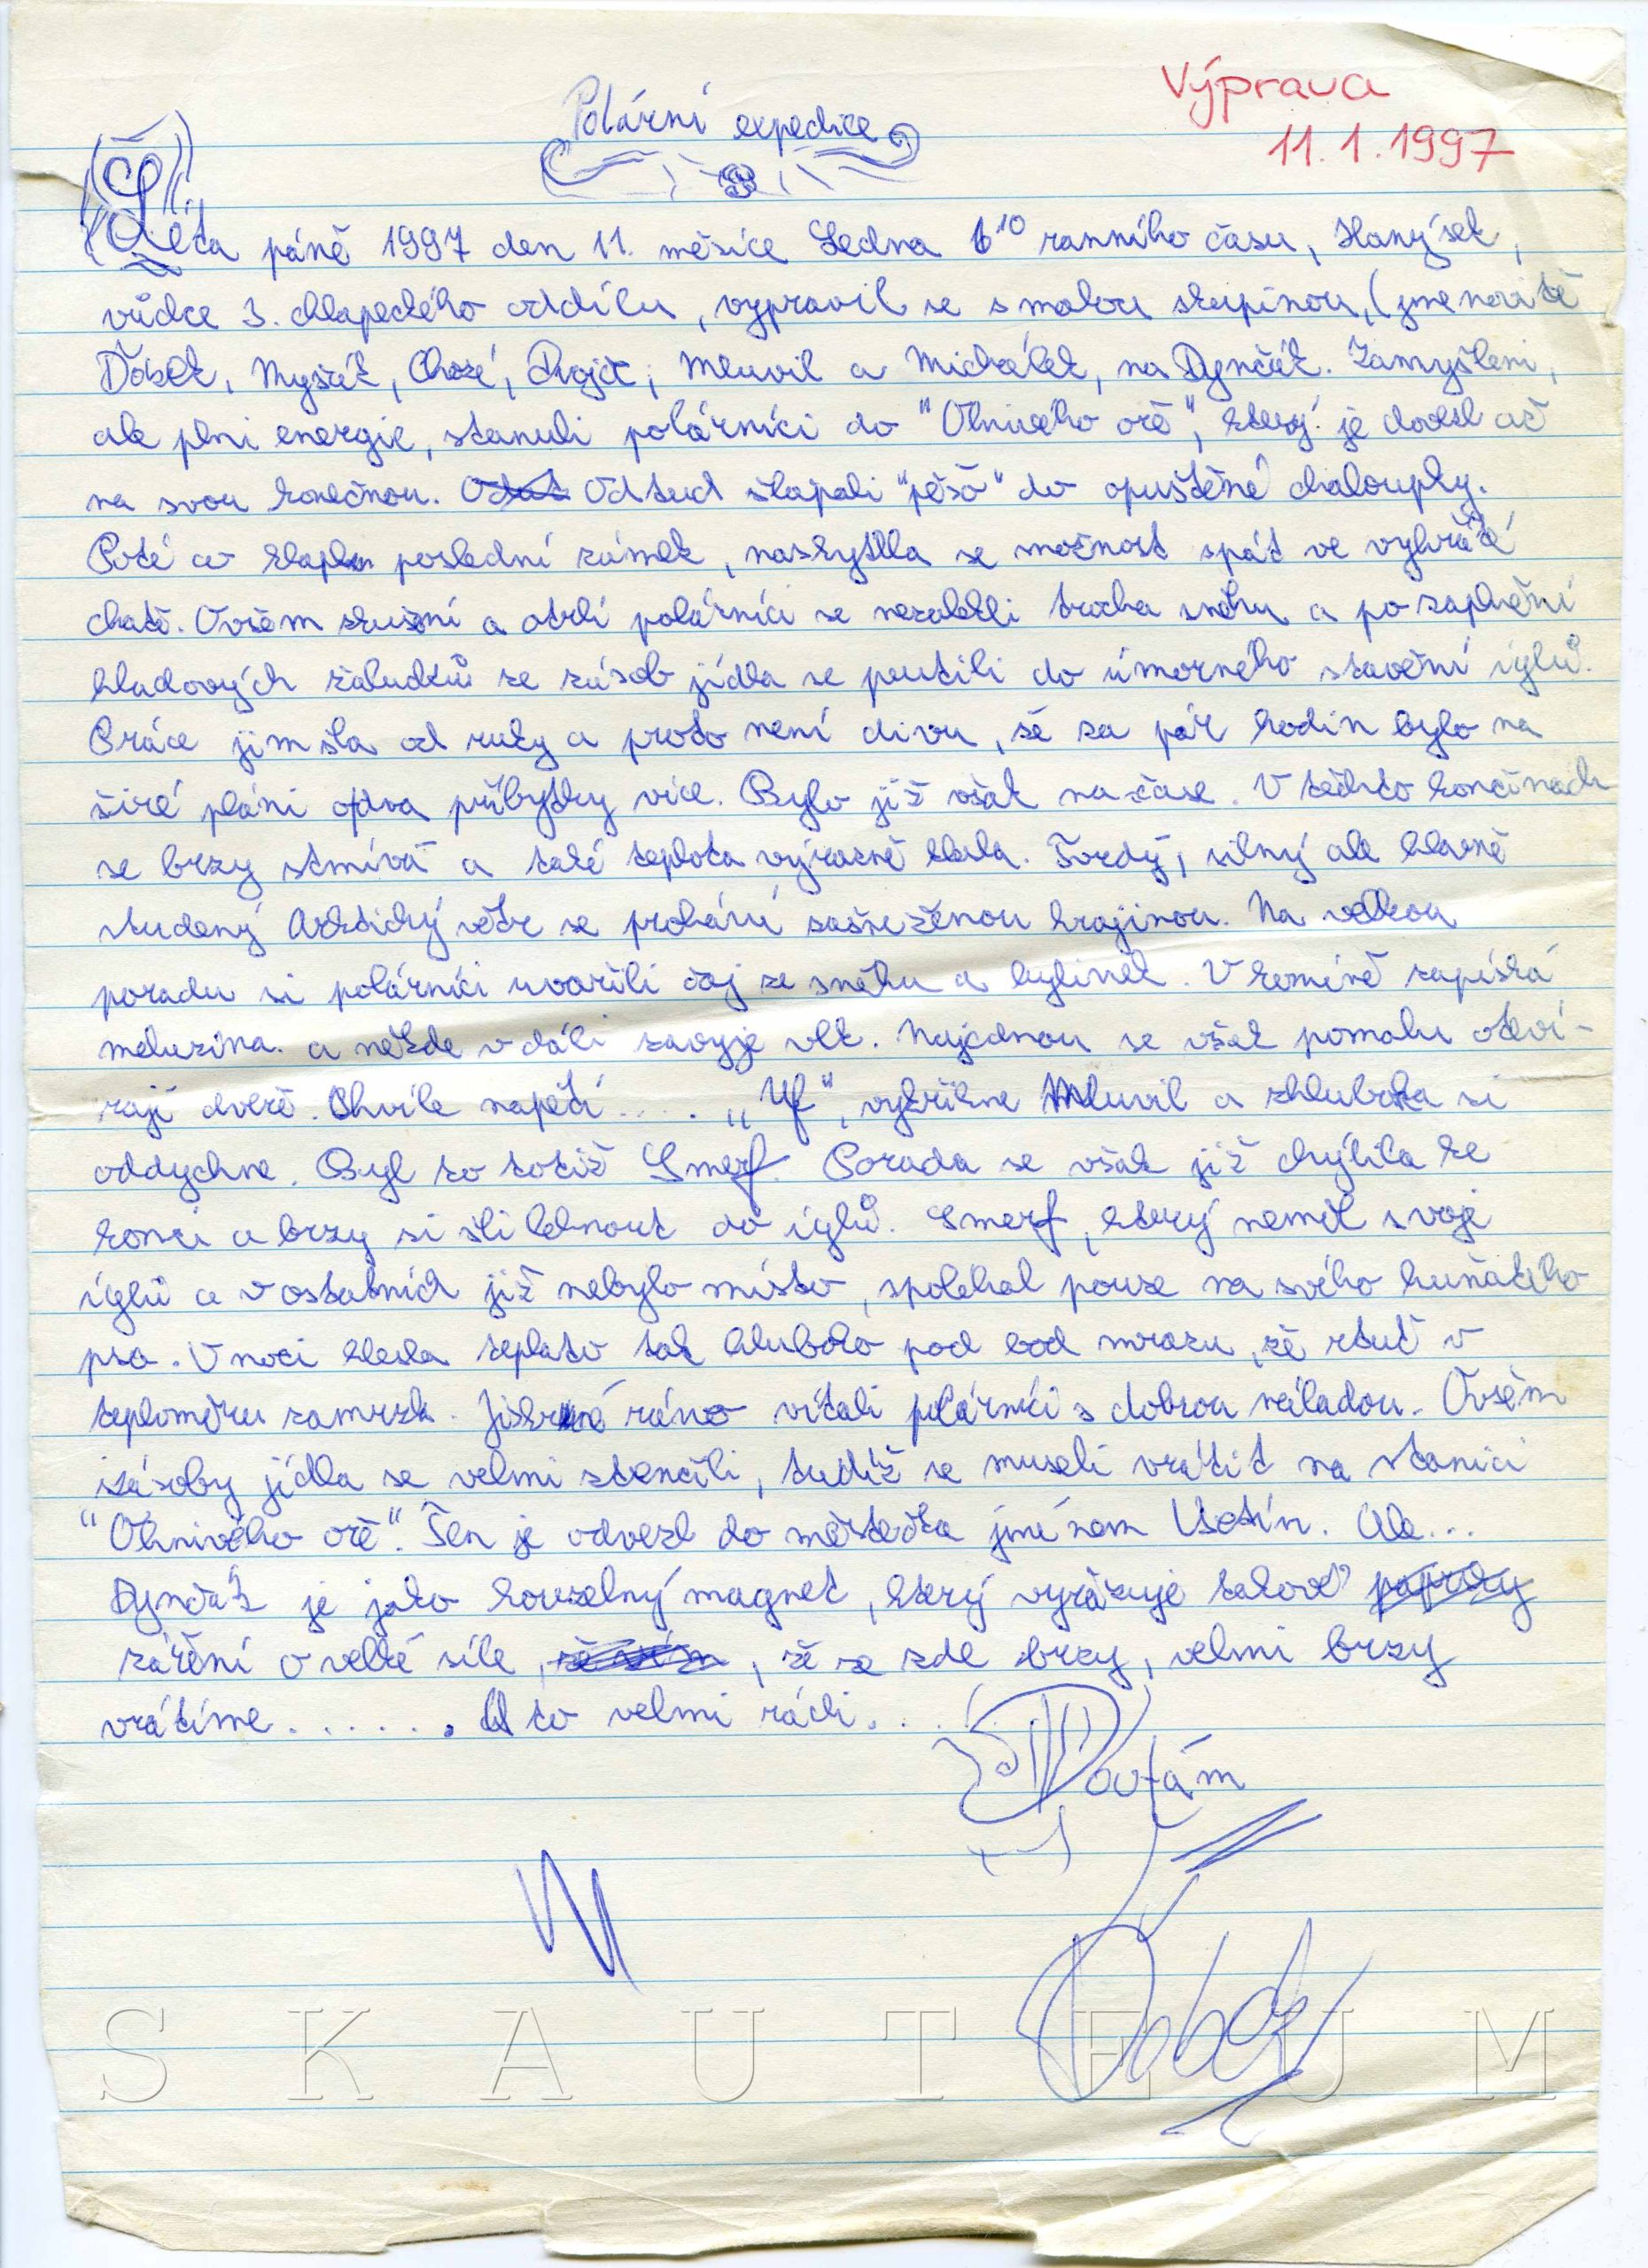 Výprava
11. 1. 1997
Polární expedice
Léta páně 1997 den 11. měsíce Ledna 6¹⁰ ranního času, Hanýsek,
vůdce 3. chlapeckého oddílu, vypravil se s malou skupinou, (jmenovitě
Ďobek, Myšák, Chosé, Dvojče, Mluvil a Michálek, na Dynčák. Zamyšleni,
ale plni energie, stanuli polárníci do "Ohnivého oře", který je dovezl až
na svou konečnou. Odtud šlapali "pěšo" do opuštěné chaloupky.
Poté co klapl poslední zámek, naskytlla se možnost spát ve vyhřáté
chatě. Ovšem zkušení a otrlí polárníci se nezalekli trocha sněhu a po zaplnění
hladových žaludků ze zásob jídla se pustili do úmorného stavění iglů.
Práce jim šla od ruky a proto není divu, že za pár hodin bylo na
širé pláni o dva příbytky více. Bylo již však na čase. V těchto končinách
se brzy stmívá a také teplota výrazně klesla. Tvrdý, silný ale hlavně
studený Arktický větr se prohání zasněženou krajinou. Na velkou
poradu si polárníci uvařili čaj ze sněhu a bylinek. V komíně zapíská
meluzina. a někde v dáli zavyje vlk. Najednou se však pomalu oteví-
rají dveře. Chvíle napětí .... „Uf", vykřikne Mluvil a zhluboka si
oddychne. Byl to totiž Smerf. Porada se však již chýlila ke
konci a brzy si šli lehnout do iglů. Smerf, který neměl svoje
iglů a v ostatních již nebylo místo, spoléhal pouze na svého huňatého
psa. V noci klesla teplato tak hluboko pod bod mrazu, že rtuť v
teploměru zamrzla. Jiskrné ráno vítali polárníci s dobrou náladou. Ovšem
zásoby jídla se velmi ztenčili, tudíž se museli vrátit na stanici
"Ohnivého oře". Ten je odvezl do městečka jménem Vsetín. Ale...
Dynčák je jako kouzelný magnet, který vyzařuje takové paprsky
záření o velké síle, že se zde brzy, velmi brzy
vrátíme....... A to velmi rádi...
Ďobek
S K A U T E U M